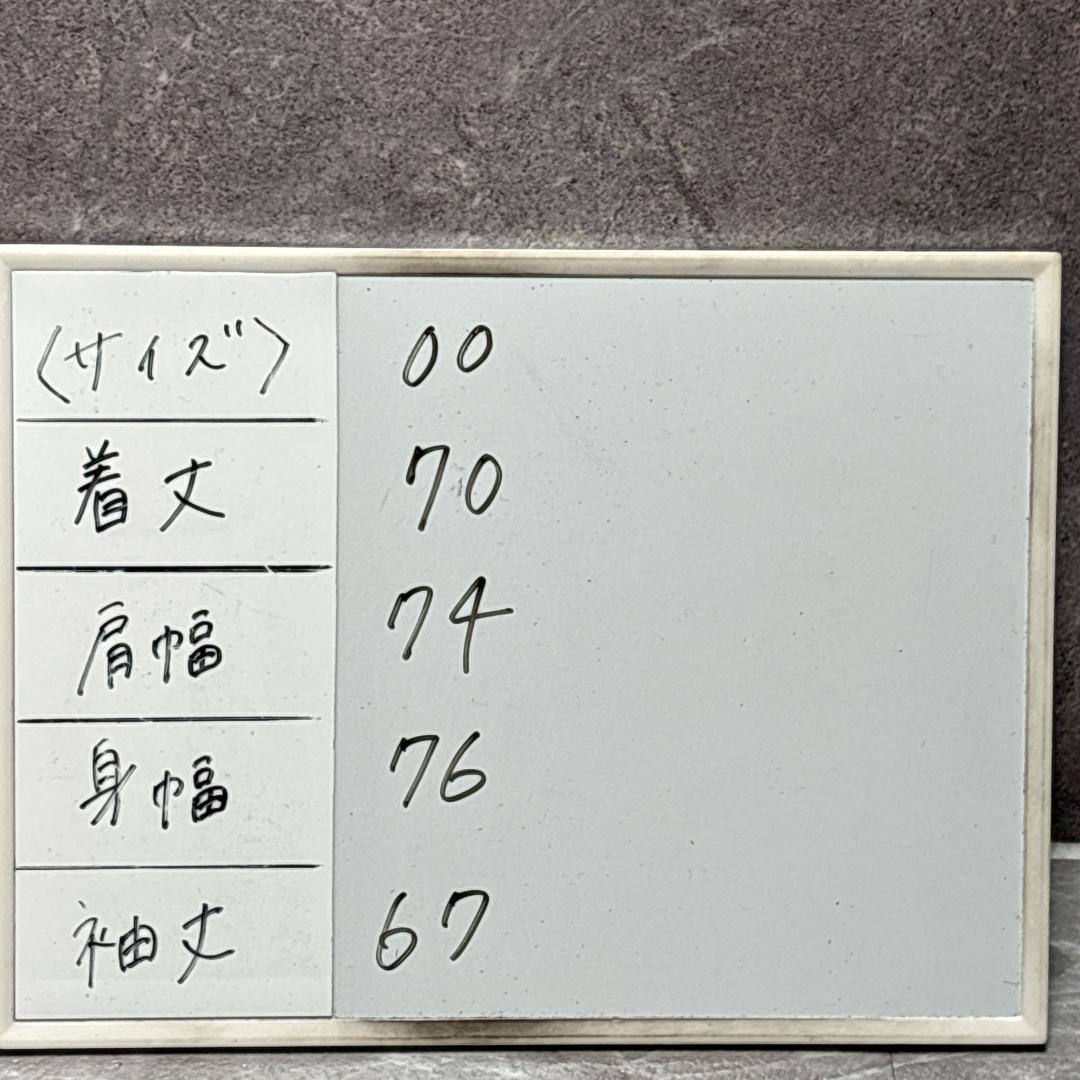 〈サイズ〉 00
着丈 70
肩幅 74
身幅 76
袖丈 67